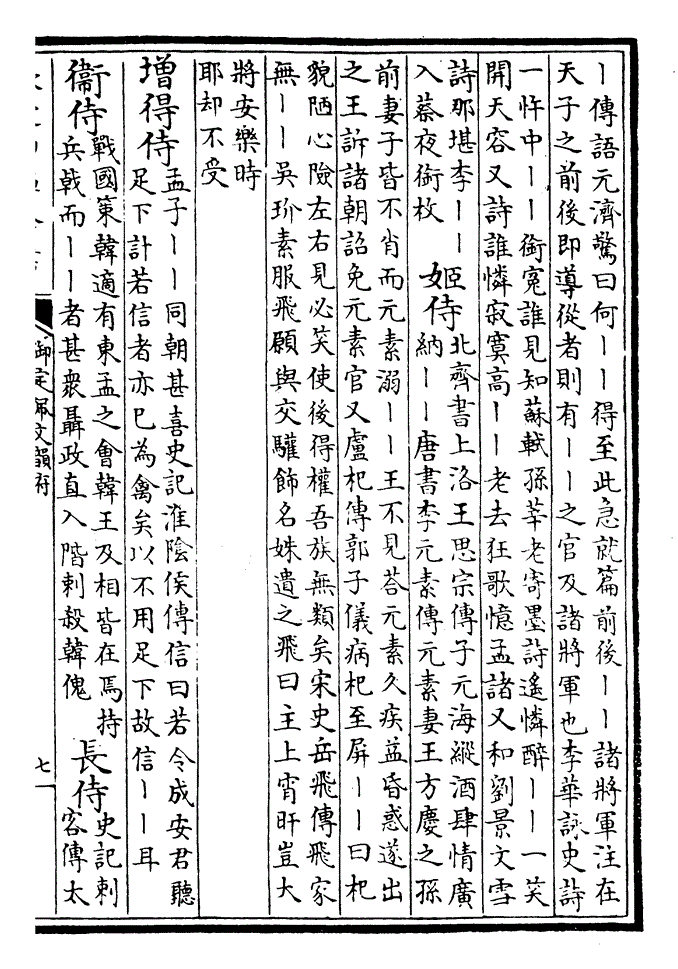 丨傳語元濟驚曰何丨丨得至此急就篇前後丨丨諸將軍注在
天子之前後即導從者則有丨丨之官及諸將軍也李華詠史詩
一忤中丨丨銜寃誰見知蘇軾孫莘老寄墨詩遙憐醉丨丨一笑
開天容又詩誰憐寂寞高丨丨老去狂歌憶孟諸又和劉景文雪
詩那堪李丨丨
入蔡夜銜枚
姬侍
北齊書上洛王思宗傳子元海縱酒肆情廣
納丨丨唐書李元素傳元素妻王方慶之孫
前妻子皆不肖而元素溺丨丨王不見荅元素久疾益昏惑遂出
之王訴諸朝詔免元素官又盧杞傳郭子儀病杞至屏丨丨曰杞
貌陋心險左右見必笑使後得權吾族無類矣宋史岳飛傳飛家
無丨丨吳玠素服飛願與交驩飾名姝遺之飛曰主上宵旰豈大
將安樂時
耶却不受
增得侍
孟子丨丨同朝甚喜史記淮陰侯傳信曰若令成安君聽
足下計若信者亦已為禽矣以不用足下故信丨丨耳
衞侍
戰國策韓適有東孟之會韓王及相皆在焉持
兵戟而丨丨者甚衆聶政直入階刺殺韓傀
長侍
史記刺
客傳太
御定佩文韻府
七